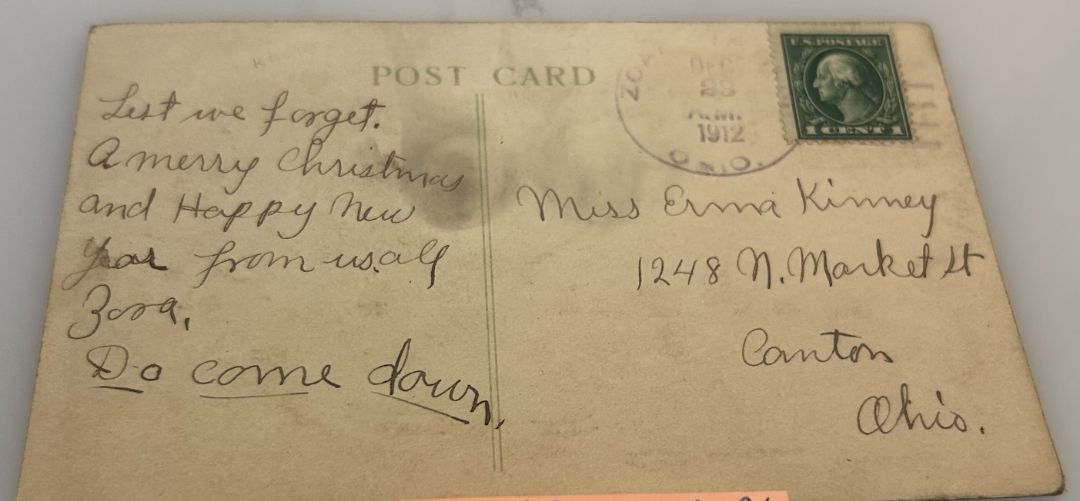 POST CARD
Lest we forget.
A merry Christmas
and Happy New
Year from us all
Zora.
Do come down.
DEC
23
A.M.
1912
OHIO.
U.S. POSTAGE
1 CENT 1
Miss Erma Kinney
1248 N. Market St
Canton
Ohio.